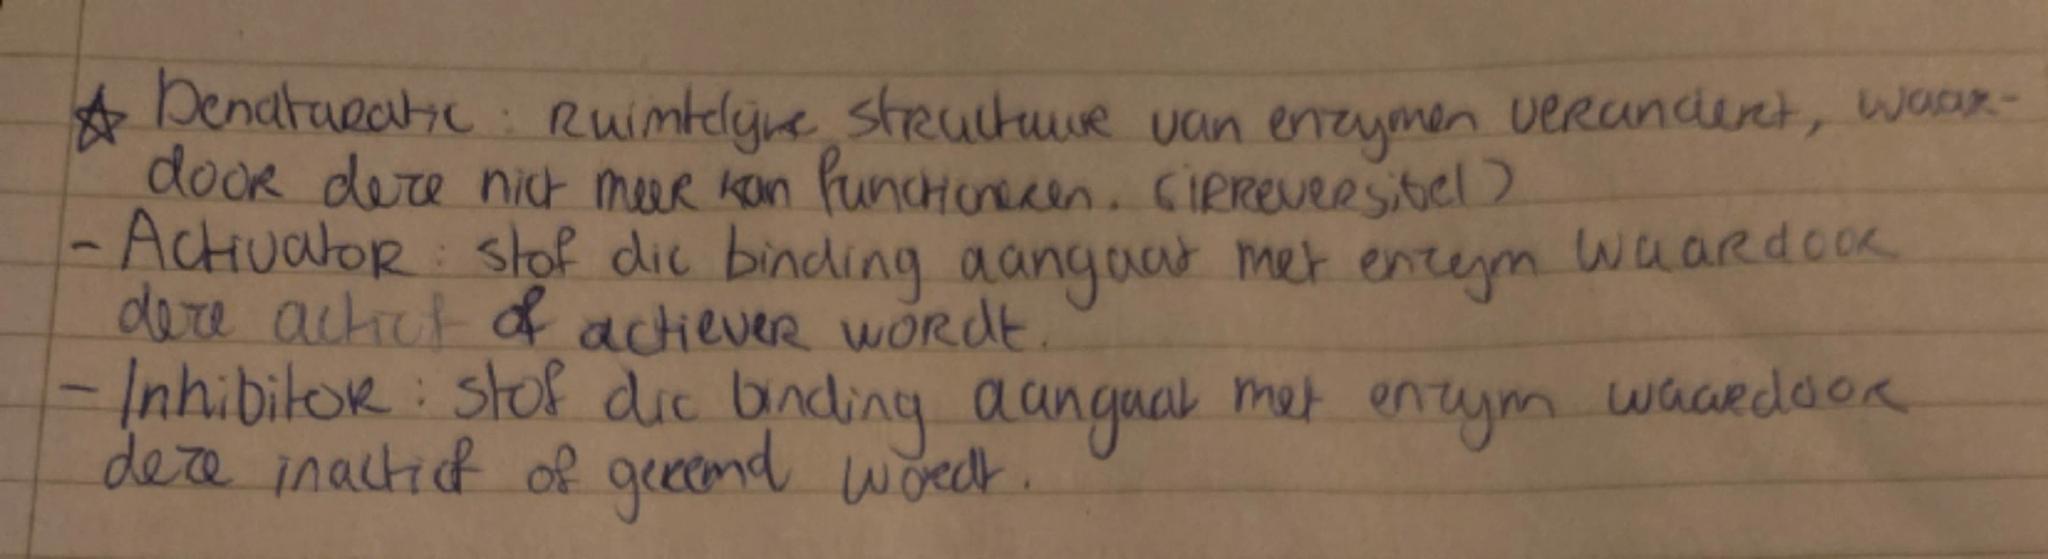 ☆ Denaturatie : Ruimtelijke structuur van enzymen verandert, waar-
door deze niet meer kan functioneren. (irreversibel)
- Activator : stof die binding aangaat met enzym waardoor
deze actief of actiever wordt.
- Inhibitor : stof die binding aangaat met enzym waardoor
deze inactief of geremd wordt.